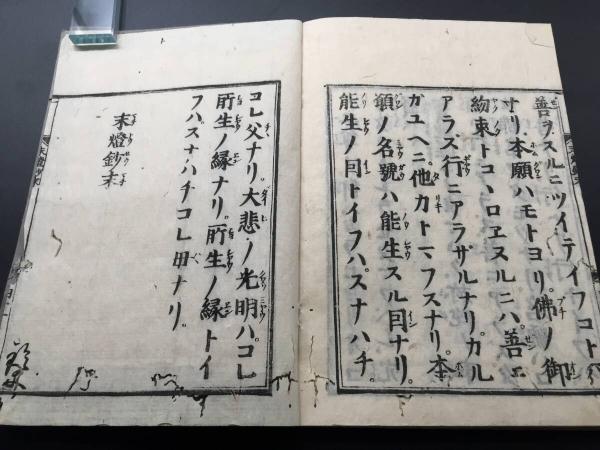 善ヲスルニツイテイフコト
ナリ。本願ハモトヨリ。佛ノ御
約束トコヽロヱヌルニハ。善ニ
アラズ行ニアラザルナリ。カル
ガユヘニ。他力トマフスナリ。本
願ノ名號ハ能生スル因ナリ。
能生ノ因トイフハ。スナハチ。
コレ父ナリ。大悲ノ光明ハ。コレ
所生ノ縁ナリ。所生ノ縁トイ
フハ。スナハチコレ母ナリ。
末燈鈔末